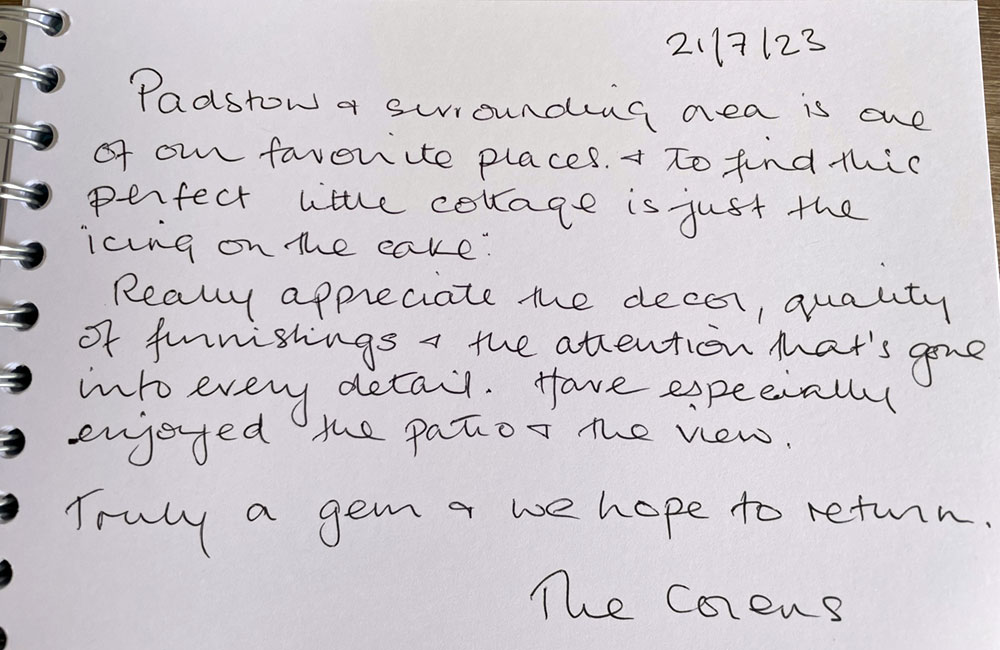 21/7/23
Padstow & surrounding area is one
of our favorite places. & to find this
perfect little cottage is just the
"icing on the cake".
Really appreciate the decor, quality
of furnishings & the attention that's gone
into every detail. Have especially
enjoyed the patio & the view.
Truly a gem & we hope to return.
The Corens